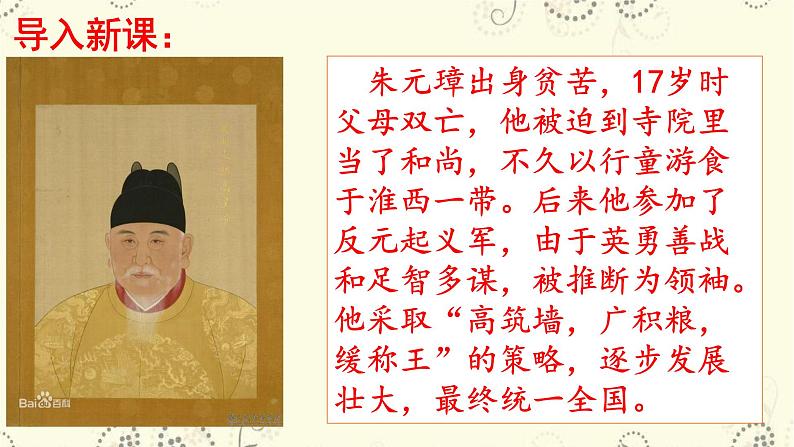 导入新课：
朱元璋出身贫苦，17岁时
父母双亡，他被迫到寺院里
当了和尚，不久以行童游食
于淮西一带。后来他参加了
反元起义军，由于英勇善战
和足智多谋，被推断为领袖。
他采取“高筑墙，广积粮，
缓称王”的策略，逐步发展
壮大，最终统一全国。
Bai百科